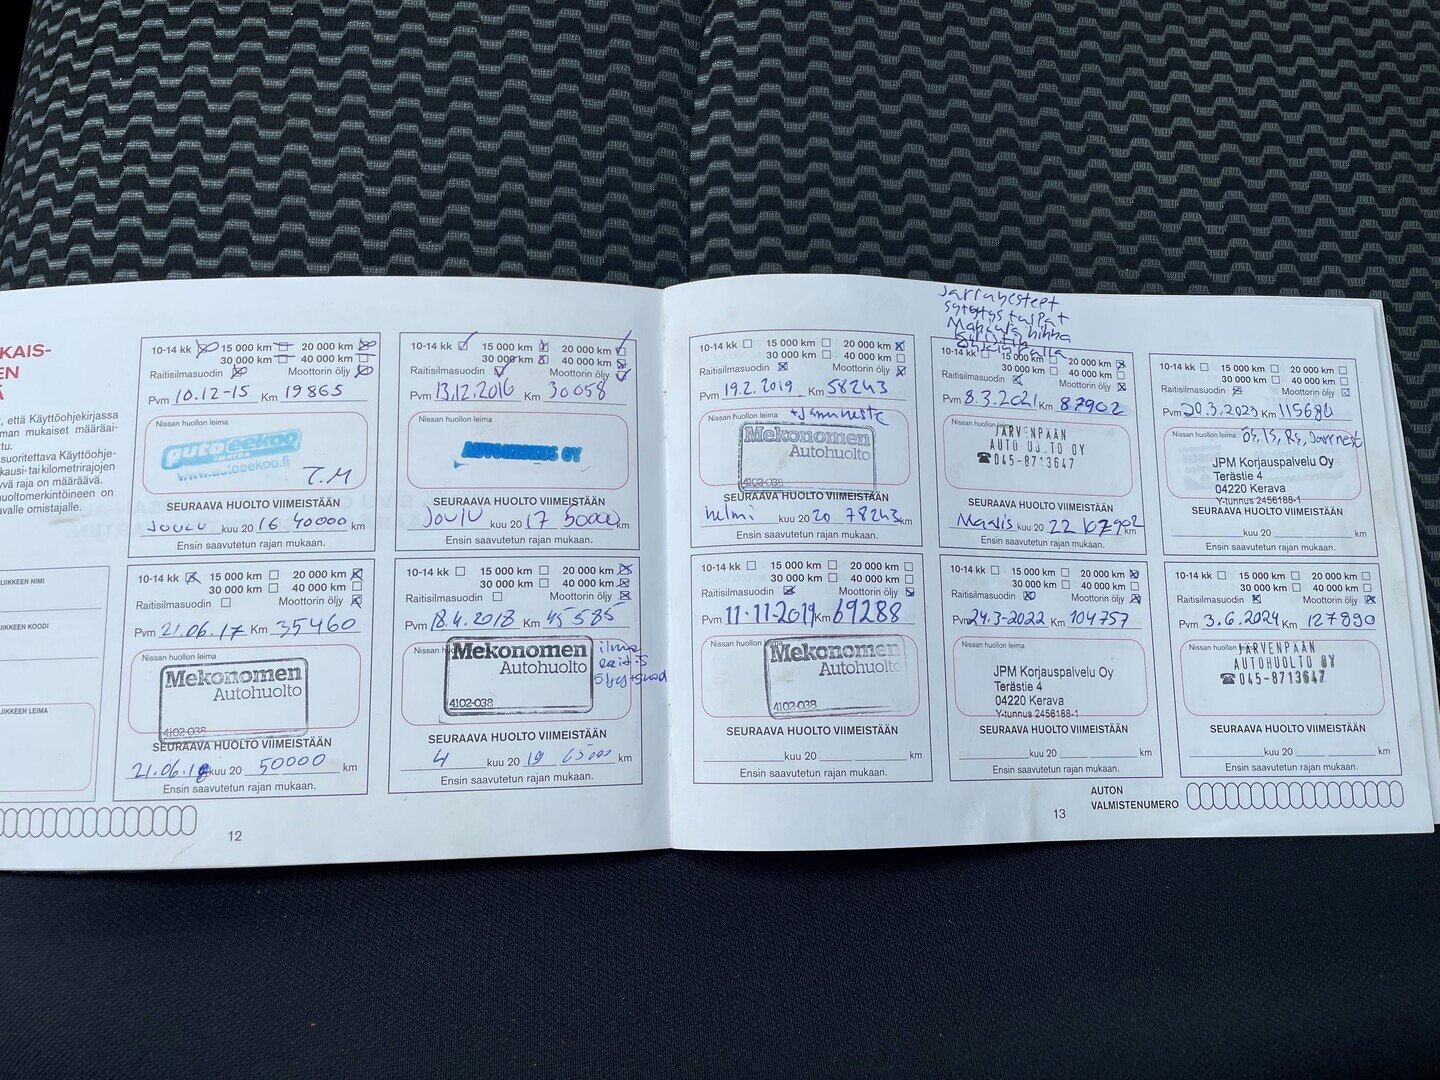 KAIS-
EN
Ä
, että Käyttöohjekirjassa
man mukaiset määräai-
tu.
suoritettava Käyttöohje-
kausi- tai kilometrirajojen
yvä raja on määräävä.
uoltomerkintöineen on
avalle omistajalle.
LIIKKEEN NIMI
LIIKKEEN KOODI
LIIKKEEN LEIMA
10-14 kk 15 000 km 20 000 km
30 000 km 40 000 km
Raitisilmasuodin Moottorin öljy
Pvm 10.12-15 Km 19865
Nissan huollon leima
autoeekoo
IMATRA
www.autoeekoo.fi
T.M
SEURAAVA HUOLTO VIIMEISTÄÄN
JOULU kuu 20 16 40000 km
Ensin saavutetun rajan mukaan.
10-14 kk 15 000 km 20 000 km
30 000 km 40 000 km
Raitisilmasuodin Moottorin öljy
Pvm 21.06.17 Km 35460
Nissan huollon leima
Mekonomen
Autohuolto
4102-038
SEURAAVA HUOLTO VIIMEISTÄÄN
21.06.18 kuu 20 50000 km
Ensin saavutetun rajan mukaan.
10-14 kk 15 000 km 20 000 km
30 000 km 40 000 km
Raitisilmasuodin Moottorin öljy
Pvm 13.12.2016 Km 30058
Nissan huollon leima
AUTOKESKUS OY
SEURAAVA HUOLTO VIIMEISTÄÄN
JOULU kuu 20 17 50000 km
Ensin saavutetun rajan mukaan.
10-14 kk 15 000 km 20 000 km
30 000 km 40 000 km
Raitisilmasuodin Moottorin öljy
Pvm 18.4.2018 Km 45585
Nissan huollon leima
Mekonomen
Autohuolto
4102-038
ilma
öljy+suod
SEURAAVA HUOLTO VIIMEISTÄÄN
4 kuu 20 19 65000 km
Ensin saavutetun rajan mukaan.
12
10-14 kk 15 000 km 20 000 km
30 000 km 40 000 km
Raitisilmasuodin Moottorin öljy
Pvm 19.2.2019 Km 58243
Nissan huollon leima +jarruneste
Mekonomen
Autohuolto
4102-038
SEURAAVA HUOLTO VIIMEISTÄÄN
helmi kuu 20 20 78243 km
Ensin saavutetun rajan mukaan.
10-14 kk 15 000 km 20 000 km
30 000 km 40 000 km
Raitisilmasuodin Moottorin öljy
Pvm 11-11-2019 Km 69288
Nissan huollon leima
Mekonomen
Autohuolto
4102-038
SEURAAVA HUOLTO VIIMEISTÄÄN
kuu 20 km
Ensin saavutetun rajan mukaan.
Jarrunesteet
sytytystulpat
hihna
10-14 kk 15 000 km 20 000 km
30 000 km 40 000 km
Raitisilmasuodin Moottorin öljy
Pvm 8.3.2021 Km 87902
Nissan huollon leima
JÄRVENPÄÄN
AUTOHUOLTO OY
☎ 045-8713647
SEURAAVA HUOLTO VIIMEISTÄÄN
Maalis kuu 20 22 107902 km
Ensin saavutetun rajan mukaan.
10-14 kk 15 000 km 20 000 km
30 000 km 40 000 km
Raitisilmasuodin Moottorin öljy
Pvm 24.3-2022 Km 104757
Nissan huollon leima
JPM Korjauspalvelu Oy
Terästie 4
04220 Kerava
Y-tunnus 2456188-1
SEURAAVA HUOLTO VIIMEISTÄÄN
kuu 20 km
Ensin saavutetun rajan mukaan.
10-14 kk 15 000 km 20 000 km
30 000 km 40 000 km
Raitisilmasuodin Moottorin öljy
Pvm 20.3.2023 Km 115684
Nissan huollon leima ÖS, IS, RS, Jarrunest
JPM Korjauspalvelu Oy
Terästie 4
04220 Kerava
Y-tunnus 2456188-1
SEURAAVA HUOLTO VIIMEISTÄÄN
kuu 20 km
Ensin saavutetun rajan mukaan.
10-14 kk 15 000 km 20 000 km
30 000 km 40 000 km
Raitisilmasuodin Moottorin öljy
Pvm 3.6.2024 Km 127890
Nissan huollon leima
JÄRVENPÄÄN
AUTOHUOLTO OY
☎ 045-8713647
SEURAAVA HUOLTO VIIMEISTÄÄN
kuu 20 km
Ensin saavutetun rajan mukaan.
AUTON
VALMISTENUMERO
13